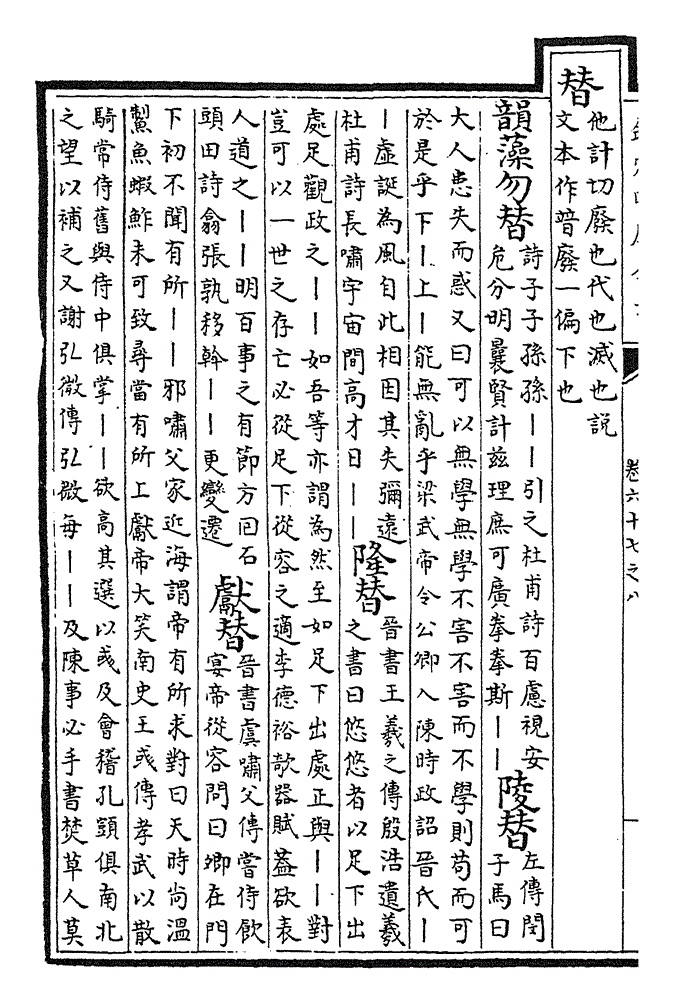 卷六十七之八
替
他計切廢也代也滅也說
文本作暜廢一偏下也
韻藻勿替
詩子子孫孫——引之杜甫詩百慮視安
危分明曩賢計茲理庶可廣拳拳斯——
陵替
左傳閔
子馬曰
大人患失而惑又曰可以無學無學不害不害而不學則苟而可
於是乎下—上—能無亂乎梁武帝令公卿入陳時政詔晉氏—
—虛誕為風自此相因其失彌遠
杜甫詩長嘯宇宙間高才日——
隆替
晉書王羲之傳殷浩遺羲
之書曰悠悠者以足下出
處足觀政之——如吾等亦謂為然至如足下出處正與——對
豈可以一世之存亡必從足下從容之適李德裕欹器賦蓋欲表
人道之——明百事之有節方回石
頭田詩翕張孰移斡——更變遷
獻替
晉書虞嘯父傳嘗侍飲
宴帝從容問曰卿在門
下初不聞有所——邪嘯父家近海謂帝有所求對曰天時尚溫
䱥魚蝦鮓未可致尋當有所上獻帝大笑南史王彧傳孝武以散
騎常侍舊與侍中俱掌——欲高其選以彧及會稽孔顗俱南北
之望以補之又謝弘微傳弘微每——及陳事必手書焚草人莫